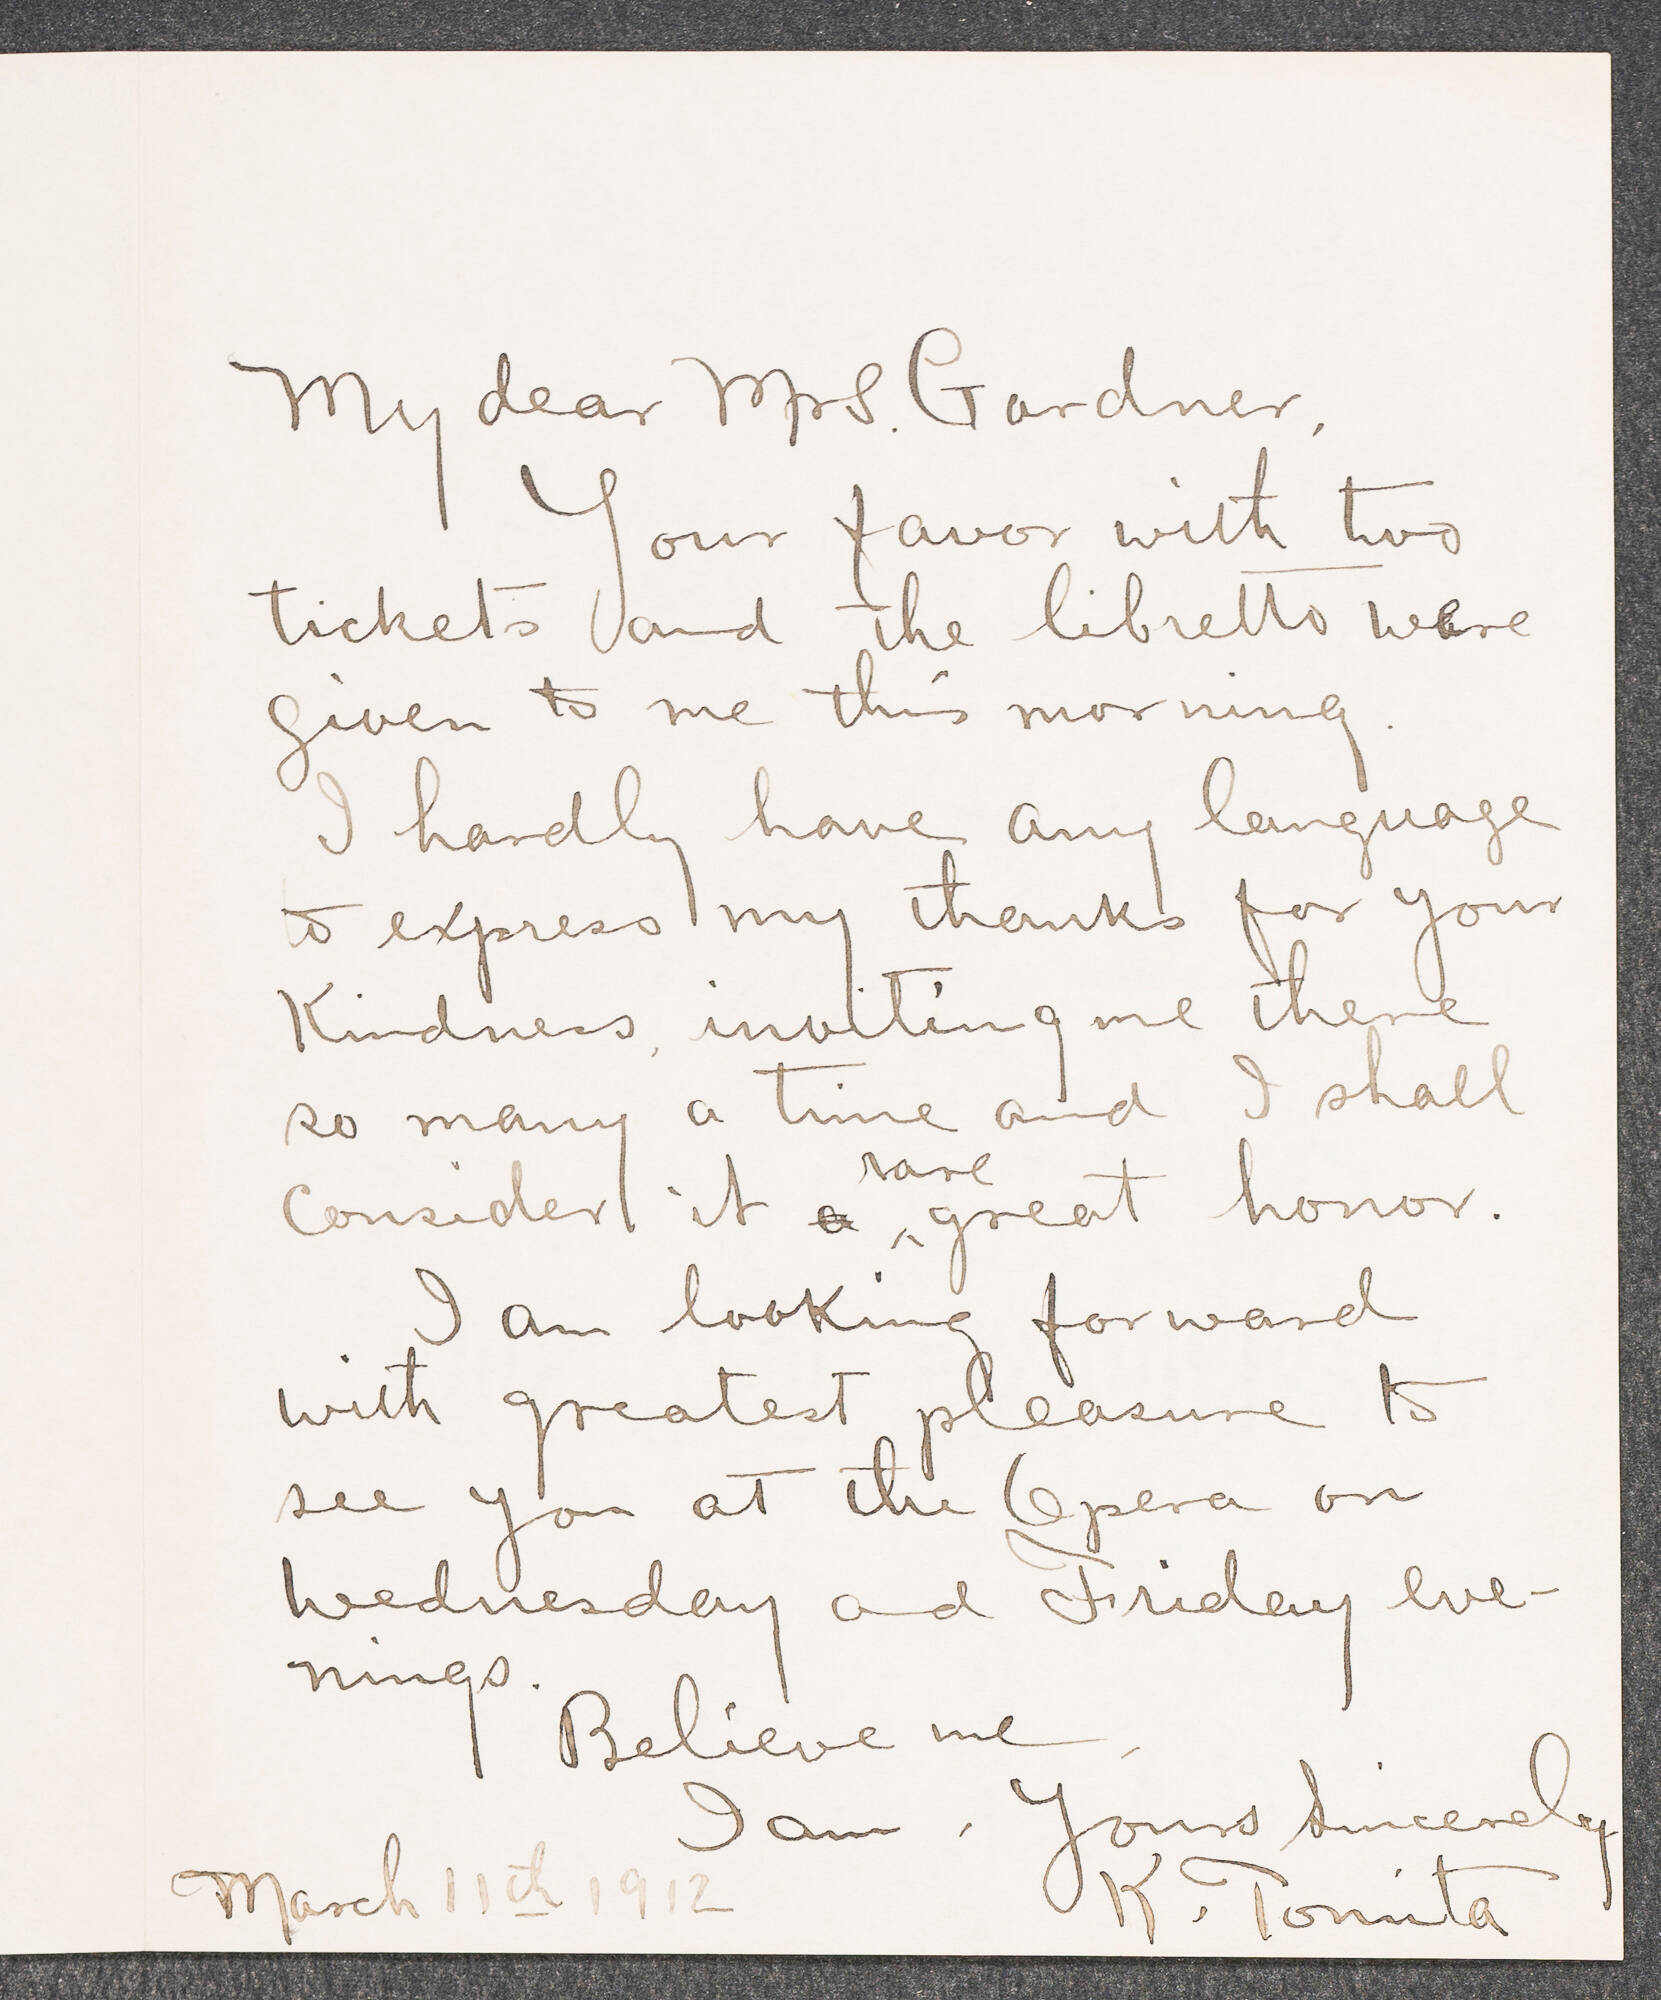 My dear Mrs. Gardner,
Your favor with two
tickets and the libretto were
given to me this morning.
I hardly have any language
to express my thanks for your
Kindness, inviting me there
so many a time and I shall
consider it a rare great honor.
I am looking forward
with greatest pleasure to
see you at the Opera on
Wednesday and Friday eve-
nings.
Believe me,
I am, Yours Sincerely
K. Tomita
March 11th 1912